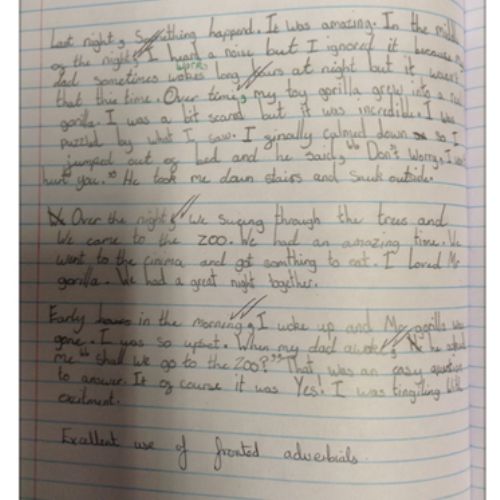 Last night, Something happend. It was amazing. In the middle
of the night, I heard a noise but I ignored it because my
dad sometimes wokes works long hours at night but it wasn't
that this time. Over time, my toy gorilla grew into a real
gorilla. I was a bit scared but it was incredible. I was
puzzled by what I saw. I finally calmed down so I
jumped out of bed and he said, "Don't worry, I won't
hurt you." He took me down stairs and snuck outside.
Over the night, we swung through the trees and
We came to the zoo. We had an amazing time. We
went to the cinima and got somthing to eat. I loved Mr
gorilla. We had a great night together.
Early hours in the morning, I woke up and Mr gorilla was
gone. I was so upset. When my dad awoke, he asked
me "shall we go to the Zoo?" That was an easy question
to answer. It of course it was Yes! I was tingiling with
excitment.
Excellent use of fronted adverbials.